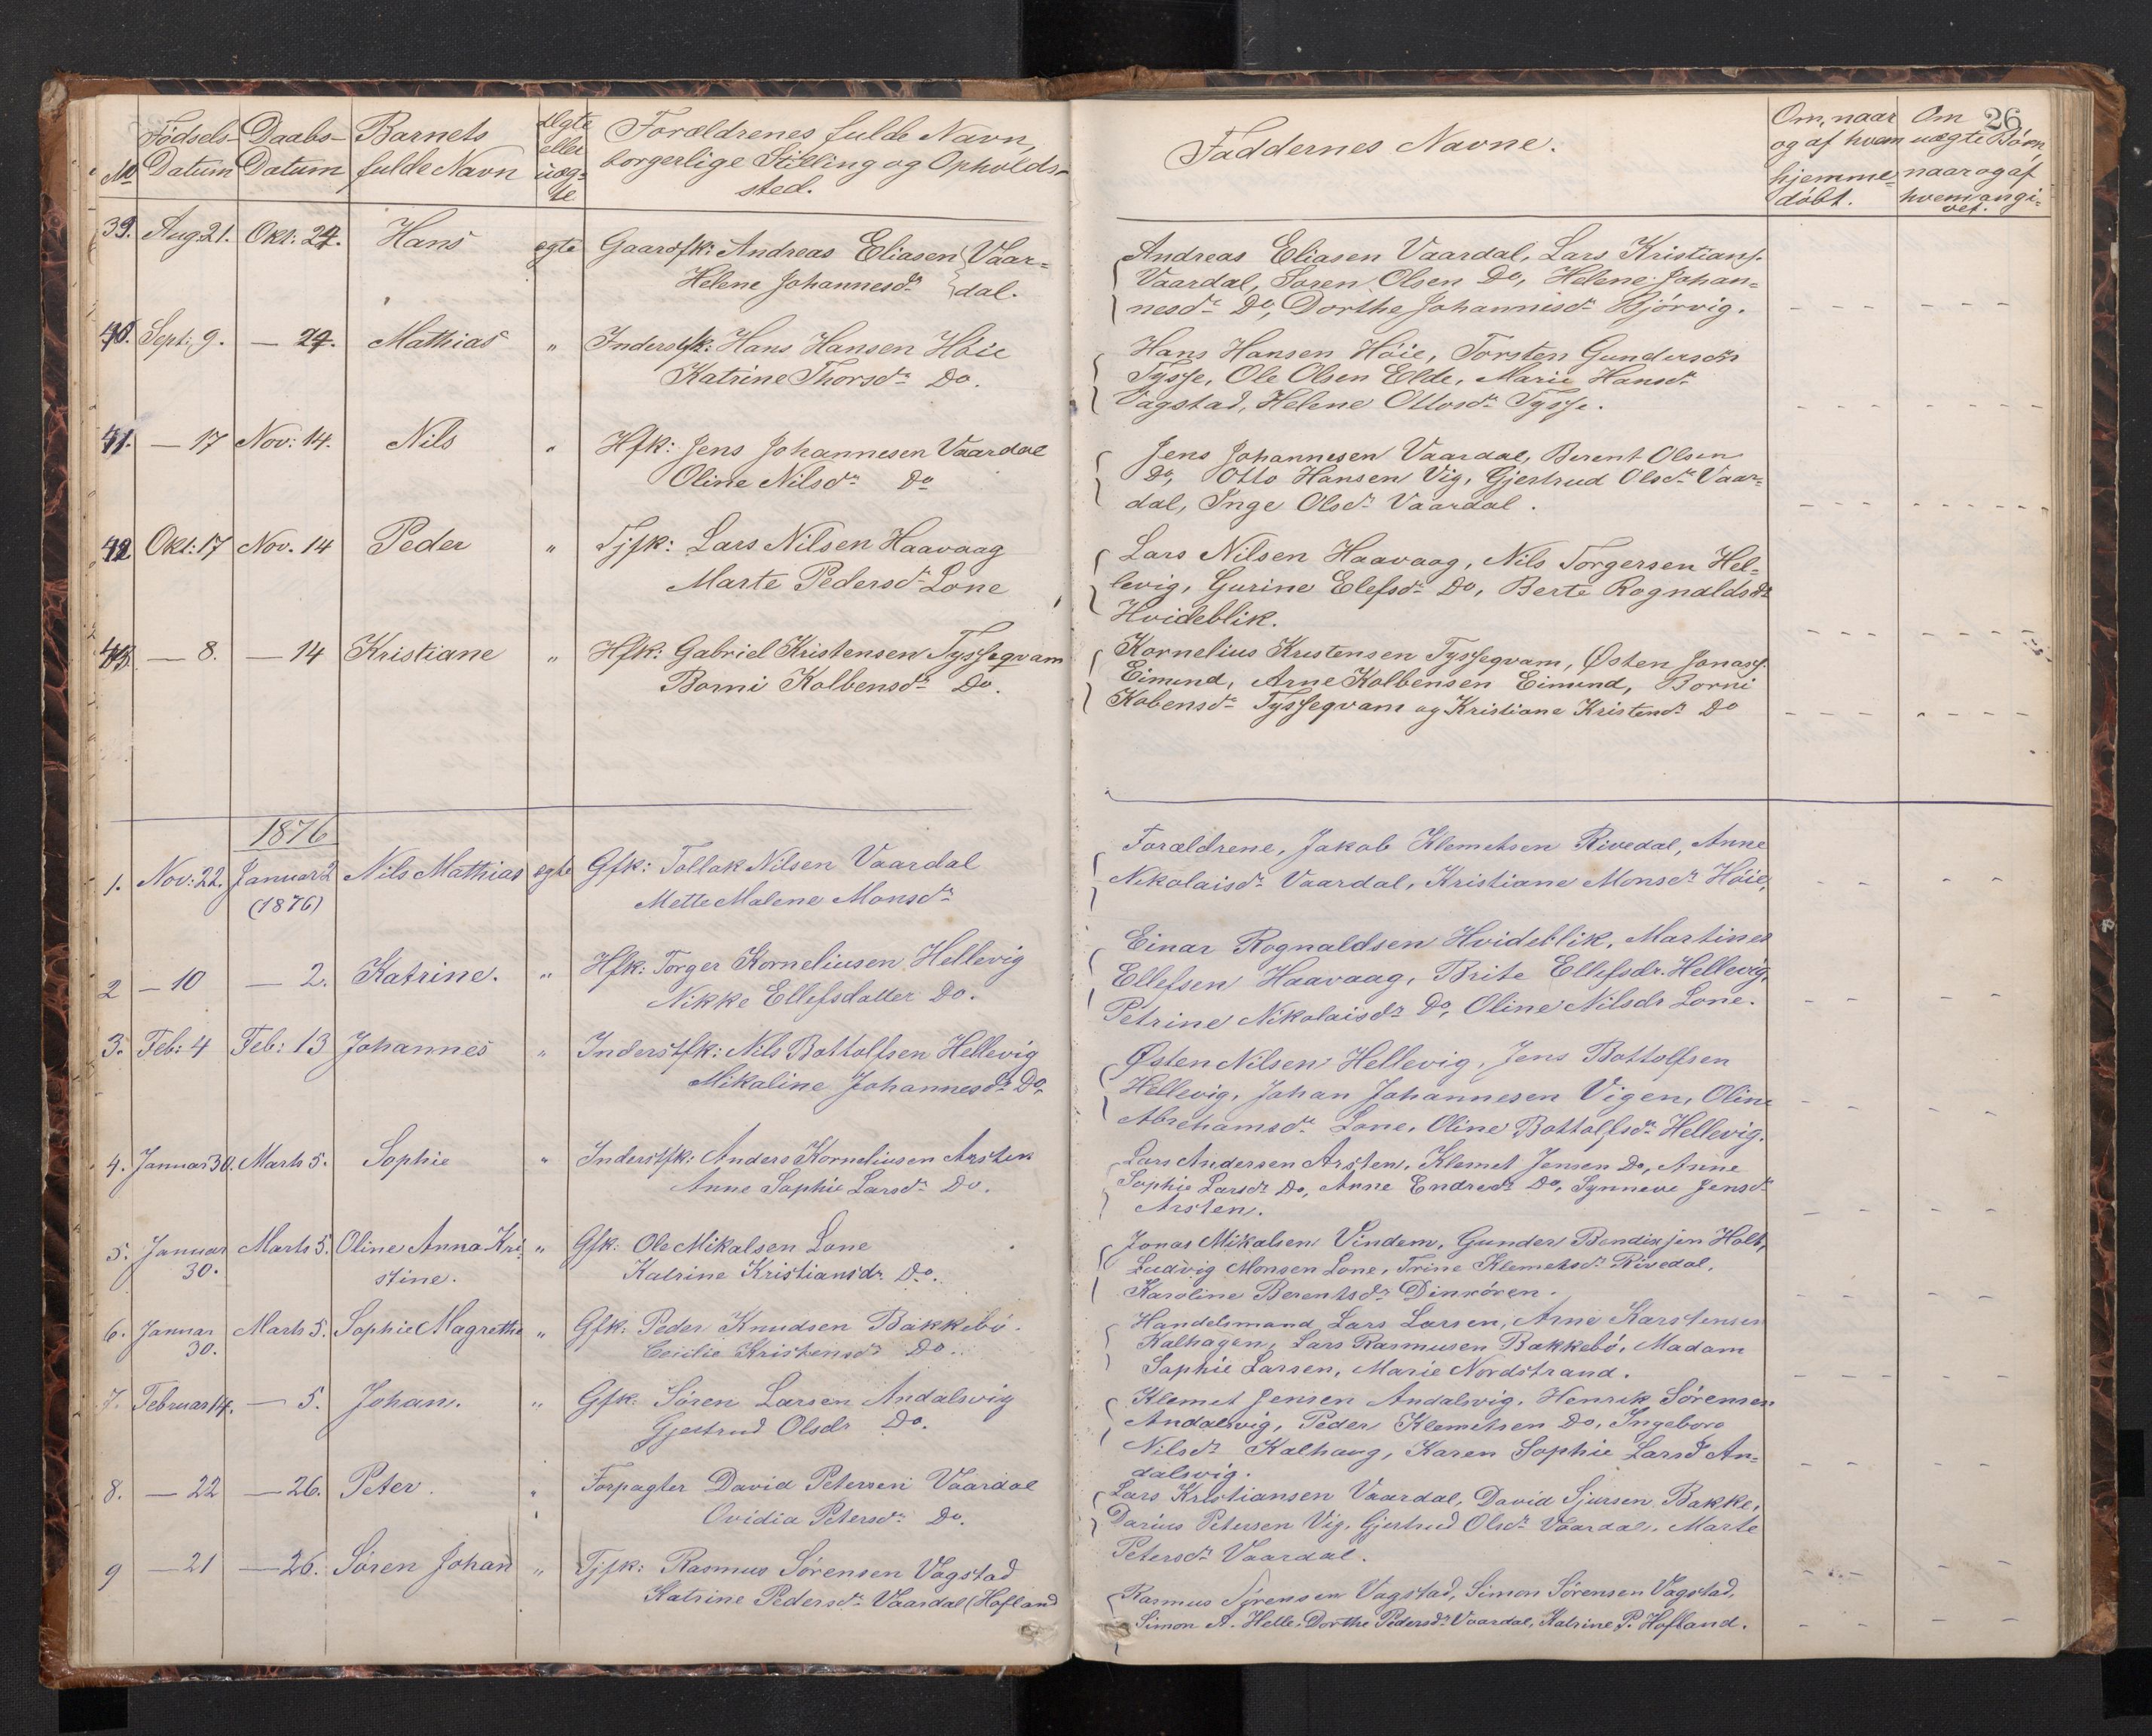 No
Fødsels-
Datum
Daabs-
Datum
Barnets
fulde Navn
Ægte
eller
uæg-
te
Forældrenes fulde Navn,
borgerlige Stilling og Opholds-
sted.
Faddernes Navne.
Om, naar
og af hvem
hjemme-
døbt.
Om
uægte Børn
naar og af
hvem angi-
vet.
26
39. Aug. 21. Okt: 24. Hans egte Gaardfk: Andreas Eliasen Vaar-
Helene Johannesdr dal.
Andreas Eliasen Vaardal, Lars Kristians.
Vaardal, Søren Olsen Do, Helene Johan-
nesdr Do, Dorthe Johannisdr Bjørvig.
40. Sept: 9. — 24. Mathias " Inderstfk: Hans Hansen Høie
Katrine Thorsdr Do.
Hans Hansen Høie, Torsten Gunders
Tysse, Ole Olsen Elde, Marie Hansdr
Vagstad, Helene Ottosdr Tysse.
41. — 17 Nov: 14. Nils " Hfk: Jens Johannesen Vaardal
Oline Nilsdr Do
Jens Johannesen Vaardal, Berent Olsen
Do, Otto Hansen Vig, Gjertrud Olsdr Vaar-
dal, Inge Olsdr Vaardal.
42 Okt: 17 Nov. 14 Peder " Tjfk: Lars Nilsen Haavaag
Marte Pedersdr Lone
Lars Nilsen Haavaag, Nils Torgersen Hel-
levig, Gurine Elefsdr Do, Berte Rognaldsdr
Hvideblik.
43. — 8. — 14 Kristiane " Hfk: Gabriel Kristensen Tyssegvam
Borni Kolbensdr Do.
Kornelius Kristensen Tyssegvam, Østen Jonass.
Eimind, Arne Kolbensen Eimind, Borni
Kobensdr Tyssegvam og Kristiane Kristendr Do
1876
1. Nov: 22. Januar 2 Nils Mathias egte Gfk: Tollak Nilsen Vaardal
(1876) Mette Malene Monsdr
Forældrene, Jakob Klemetsen Rivedal, Anne
Nikolaisdr Vaardal, Kristiane Monsdr Høie,
2 — 10 — 2. Katrine. " Hfk: Torger Korneliusen Hellevig
Nikke Ellefsdatter Do.
Einar Rognaldsen Hvideblik, Martines
Ellefsen Haavaag, Brite Ellefsdr. Hellevig,
Petrine Nikolaisdr Do, Oline Nilsdr Lone.
3. Feb: 4 Feb: 13 Johannes " Inderstfk: Nils Bottolfsen Hellevig
Mikaline Johannesdr Do,
Østen Nilsen Hellevig, Jens Bottolfsen
Hellevig, Johan Johannesen Vigen, Oline
Abrehamsdr Lone, Oline Bottolfsdr Hellevig.
4. Januar 30. Marts 5. Sophie " Inderstfk: Anders Korneliusen Arsten
Anne Sophie Larsdr Do.
Lars Andersen Arsten, Klemet Jensen Do, Anne
Sophie Larsdr Do, Anne Endredr Do, Synneve Jensdr
Arsten.
5. Januar Marts 5. Oline Anna Kri- " Gfk: Ole Mikalsen Lone
30. stine. Katrine Kristiansdr Do.
Jonas Mikalsen Vindem, Gunder Bendixsen Holt,
Ludvig Monsen Lone, Trine Klemetsdr Rivedal,
Karoline Berentsdr Dinrøren.
6. Januar Marts 5. Sophie Magrethe " Gfk: Peder Knudsen Bakkebø.
30. Cecilie Kristensdr Do.
Handelsmand Lars Larsen, Arne Karstensen
Kalhagen, Lars Rasmusen Bakkebø, Madam
Sophie Larsen, Marie Nordstrand.
7. Februar 14. — 5. Johan. " Gfk: Søren Larsen Andalsvig
Gjertrud Olsdr Do.
Klemet Jensen Andalsvig, Henrik Sørensen
Andalsvig, Peder Klemetsen Do, Ingeborg
Nilsdr Kalhaug, Karen Sophie Larsd An-
dalsvig.
8. — 22 — 26. Peter. " Forpagter David Petersen Vaardal
Ovidia Petersdr Do.
Lars Kristiansen Vaardal, David Sjursen Bakke,
Darius Petersen Vig, Gjertrud Olsdr Vaardal, Marte
Petersdr Vaardal.
9 — 21 — 26. Søren Johan " Tjfk: Rasmus Sørensen Vagstad
Katrine Pedersdr Vaardal (Hofland
Rasmus Sørensen Vagstad, Simon Sørensen Vagstad,
Simon A. Helle, Dorthe Pedersdr Vaardal, Katrine P. Hofland.